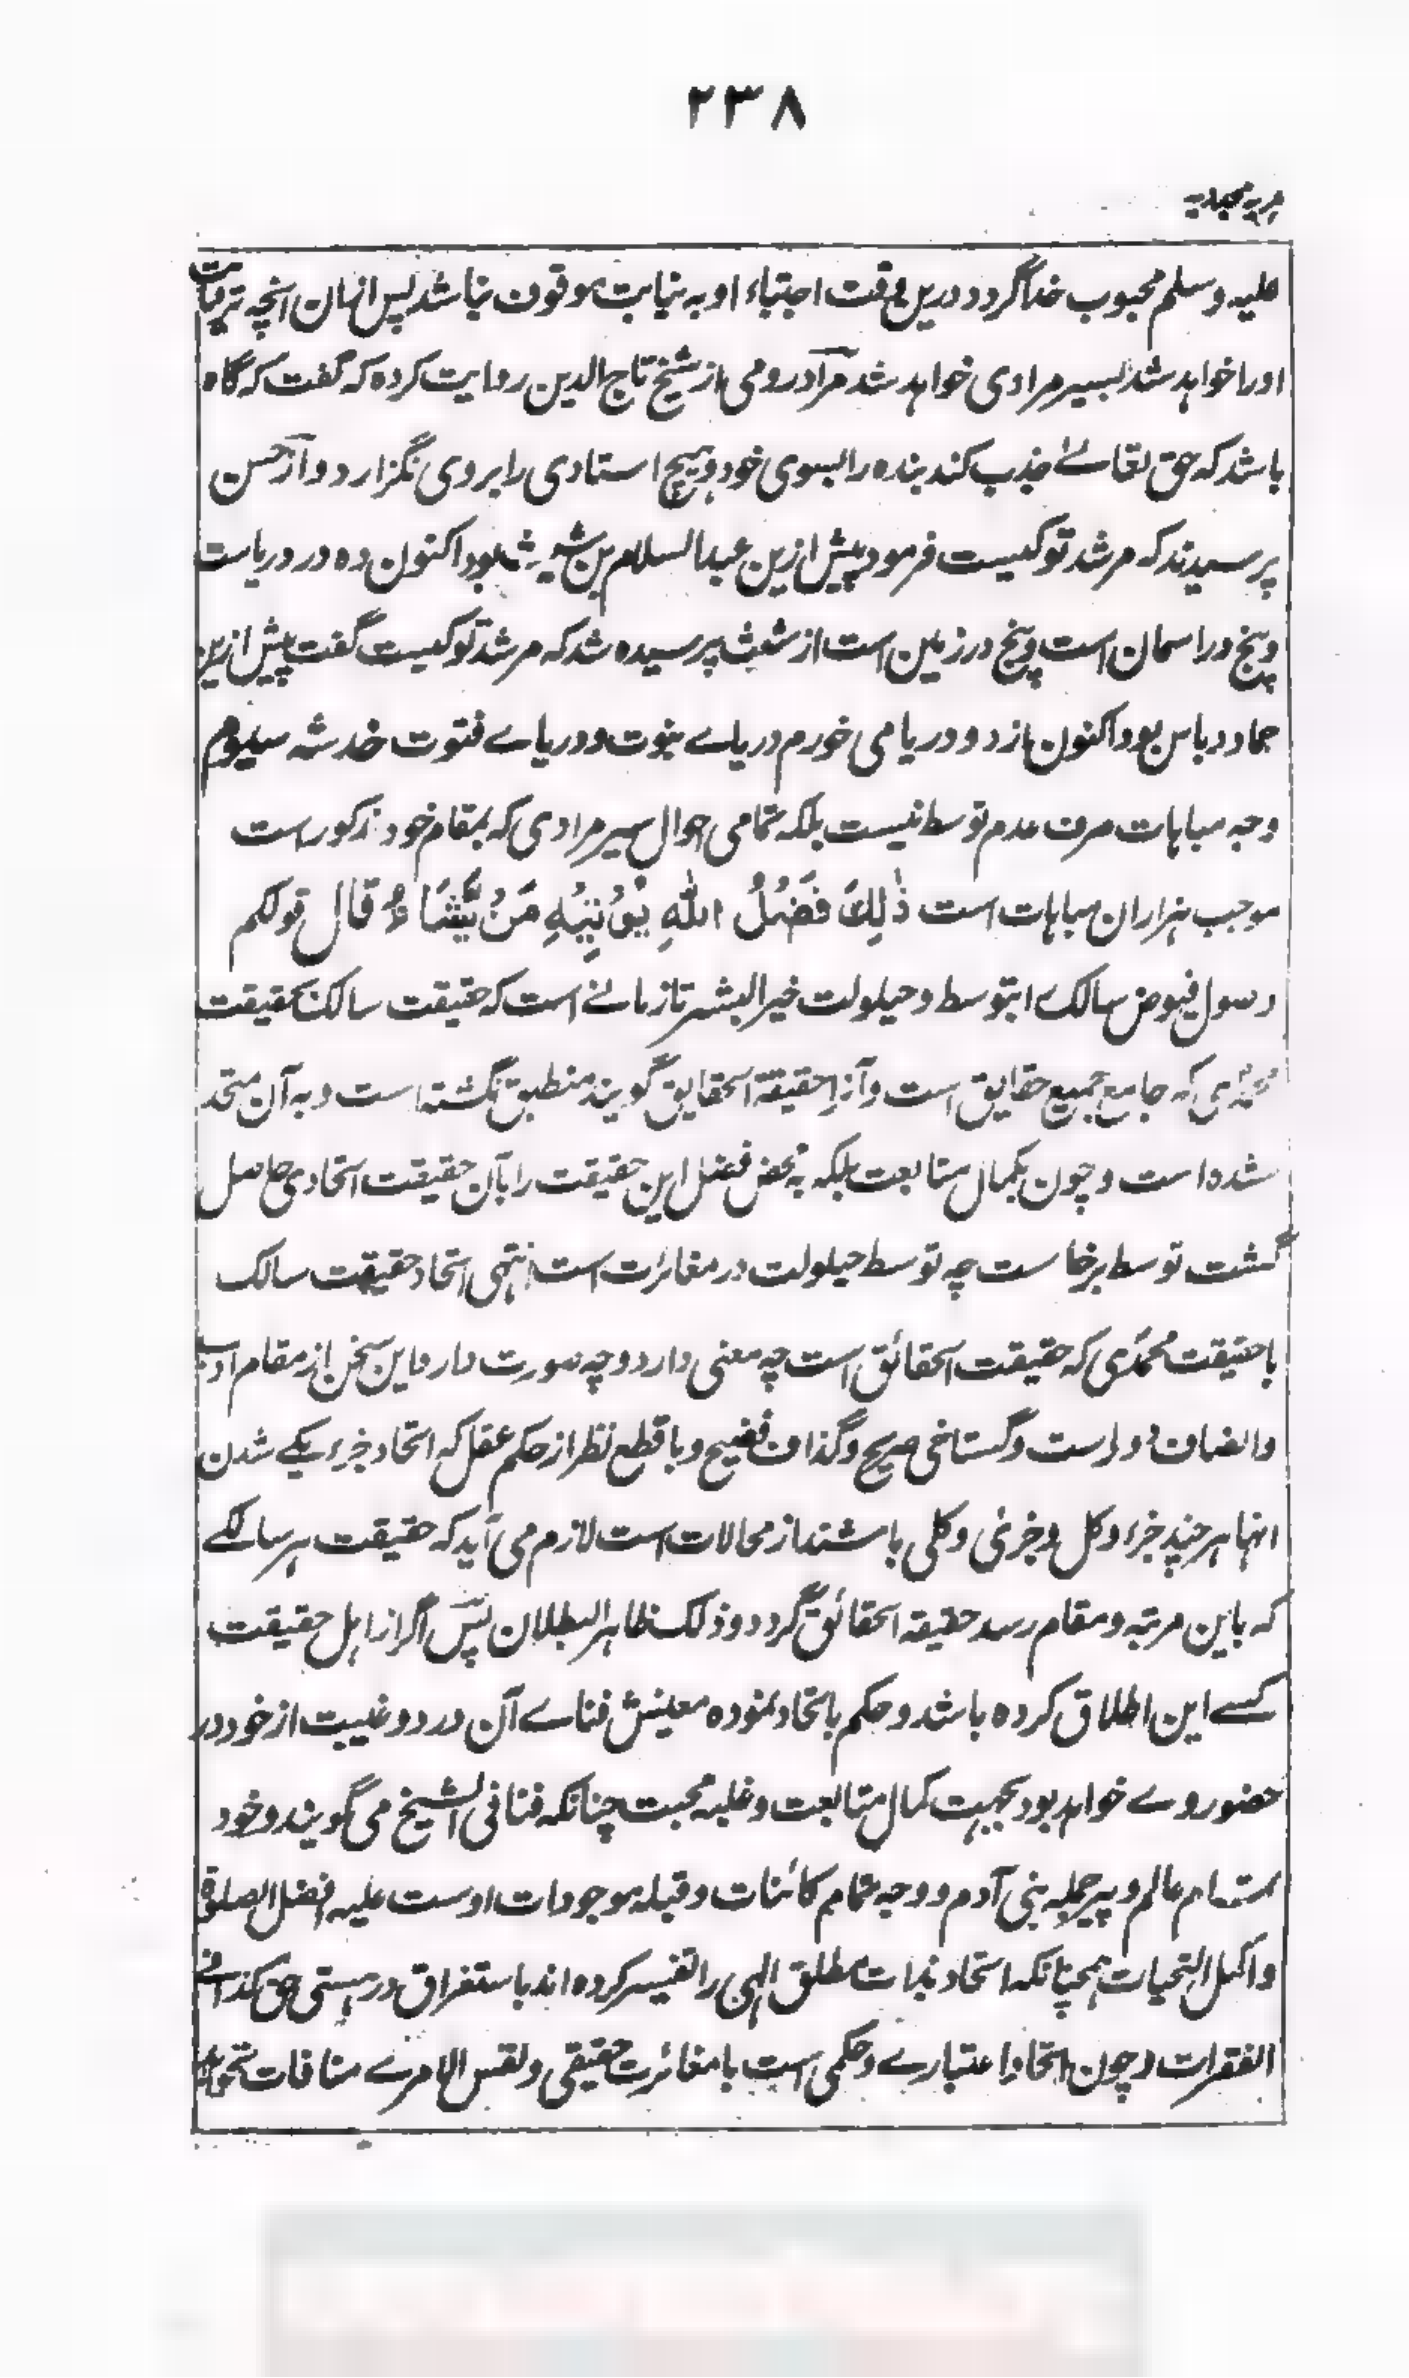 ۲۳۸
ہدیہ مجددیہ
علیہ وسلم محبوب خدا گردد درین وقت اجتباء او به نیابت موقوف نباشد پس ازان آنچه ترقیات
اورا خواہد شد بسیر مرادی خواہد شد مرآد رومی از شیخ تاج الدین روایت کرده که گفت که گاه
باشد که حق تعالےٰ جذب کند بنده را بسوی خود و ہیچ استادی را بر وی نگزارد و از حسن
پرسیدند که مرشد تو کیست فرمود پیش ازین عبد السلام بن بود اکنون ده در دریاست
و پنج در اسمان است و پنج در زمین است از پرسیده شد که مرشد تو کیست گفت پیش ازین
حماد دباس بود اکنون از دو دریا می خورم دریاے نبوت و دریاے فتوت خدشه سیوم
وجه مباہات صرف عدم توسط نیست بلکه تمامی احوال سیر مرادی که بمقام خود مذکور است
موجب ہزاران مباہات است ذٰلِكَ فَضْلُ اللهِ يُؤْتِيْهِ مَنْ يَّشَاءُ قال قولکم
وصول فیوض سالک را بتوسط و حیلولت خیر البشر تا زمانے است که حقیقت سالک بحقیقت
محمدی که جامع جمیع حقایق است و آنرا حقیقة الحقایق گویند منطبق نگشته است و به آن متحد
نشده است و چون بکمال متابعت بلکه به محض فضل این حقیقت را بآن حقیقت اتحادی حاصل
گشت توسط برخاست چه توسط حیلولت در مغائرت است انتہی اتحاد حقیقت سالک
با حقیقت محمدی که حقیقت الحقائق است چه معنی دارد و چه صورت دارد این سخن از مقام ادب
و انصاف دورست و گستاخی صریح و گذاف فضیح و با قطع نظر از حکم عقل که اتحاد جزء یکے شدن
انہا ہر چند جزء و کل و جزئی و کلی باشند از محالات است لازم می آید که حقیقت ہر سالکے
که باین مرتبه و مقام رسد حقیقة الحقائق گردد و ذلک ظاہر البطلان پس اگر از اہل حقیقت
کسے این اطلاق کرده باشد و حکم باتحاد نموده معنیش فناے آن در دو غیبت از خود در
حضور وے خواہد بود بجہت کمال متابعت و غلبه محبت چنانکه فنا فی الشیخ می گویند و خود
تمام عالم و پیر جمله بنی آدم و وجه تمام کائنات و قبله موجودات اوست علیه افضل الصلوة
و اکمل التحیات ہمچنانکه اتحاد بذات مطلق الہی را تفسیر کرده اند باستغراق در ہستی حق کذا فے
الفقرات و چون اتحاد اعتبارے و حکمی است با مغائرت حقیقی و نفس الامرے منافات نخواہد